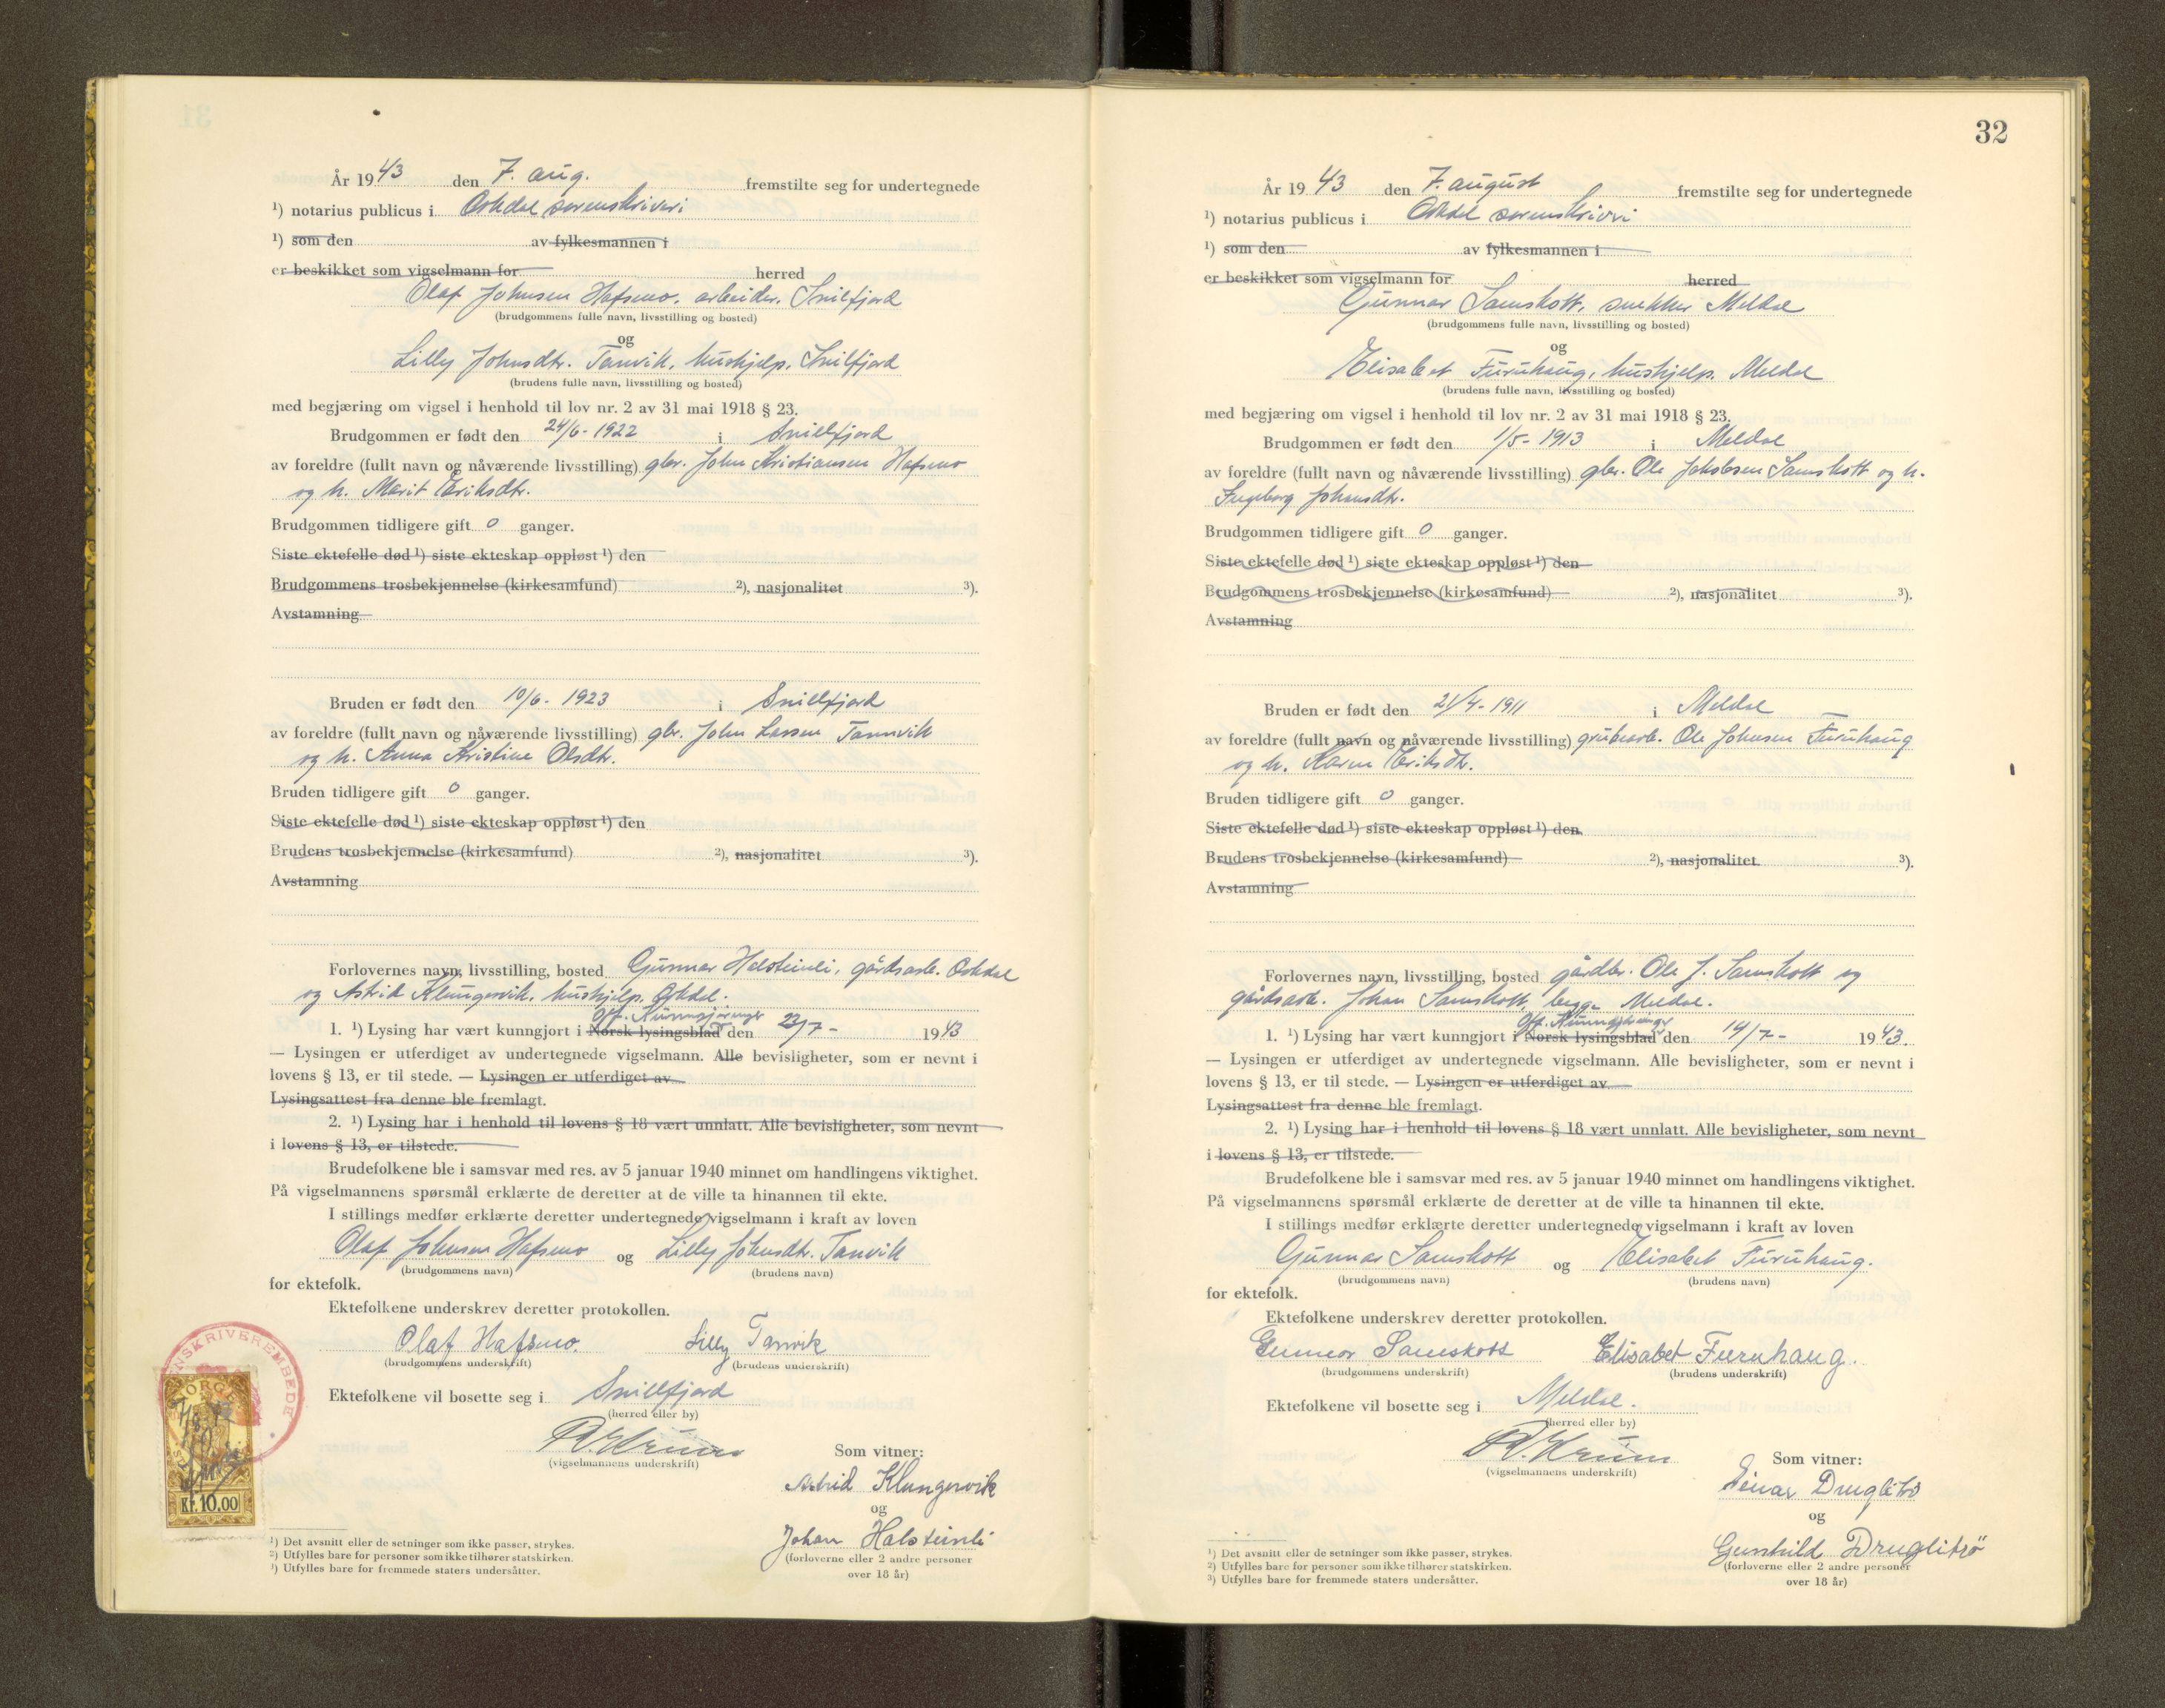 År 1943 den 7. aug. fremstilte seg for undertegnede
¹) notarius publicus i Orkdal sorenskriveri
¹) som den av fylkesmannen i
er beskikket som vigselmann for herred
Olaf Johnsen Hafsmo, arbeider, Snillfjord
(brudgommens fulle navn, livsstilling og bosted)
og
Lilly Johnsdtr. Tanvik, hushjelp, Snillfjord
(brudens fulle navn, livsstilling og bosted)
med begjæring om vigsel i henhold til lov nr. 2 av 31 mai 1918 § 23.
Brudgommen er født den 24/6-1922 i Snillfjord
av foreldre (fullt navn og nåværende livsstilling) gbr. John Kristiansen Hafsmo
og h. Marit Eriksdtr.
Brudgommen tidligere gift 0 ganger.
Siste ektefelle død ¹) siste ekteskap oppløst ¹) den
Brudgommens trosbekjennelse (kirkesamfund) ²), nasjonalitet ³).
Avstamning
Bruden er født den 10/6-1923 i Snillfjord
av foreldre (fullt navn og nåværende livsstilling) gbr. John Larsen Tannvik
og h. Anna Kristine Olsdtr.
Bruden tidligere gift 0 ganger.
Siste ektefelle død ¹) siste ekteskap oppløst ¹) den
Brudens trosbekjennelse (kirkesamfund) ²), nasjonalitet ³).
Avstamning
Forlovernes navn, livsstilling, bosted Gunnar Halsteinli, gårdsarb. Orkdal
og Astrid Klungervik, hushjelp, Orkdal.
off. Kunngjøringer
1. ¹) Lysing har vært kunngjort i Norsk lysingsblad den 23/7- 1943
— Lysingen er utferdiget av undertegnede vigselmann. Alle bevisligheter, som er nevnt i
lovens § 13, er til stede. — Lysingen er utferdiget av
Lysingsattest fra denne ble fremlagt.
2. ¹) Lysing har i henhold til lovens § 18 vært unnlatt. Alle bevisligheter, som nevnt
i lovens § 13, er tilstede.
Brudefolkene ble i samsvar med res. av 5 januar 1940 minnet om handlingens viktighet.
På vigselmannens spørsmål erklærte de deretter at de ville ta hinannen til ekte.
I stillings medfør erklærte deretter undertegnede vigselmann i kraft av loven
Olaf Johnsen Hafsmo og Lilly Johnsdtr. Tanvik
(brudgommens navn) (brudens navn)
for ektefolk.
Ektefolkene underskrev deretter protokollen.
Olaf Hafsmo. Lilly Tanvik
(brudgommens underskrift) (brudens underskrift)
Ektefolkene vil bosette seg i Snillfjord
(herred eller by)
(vigselmannens underskrift)
Som vitner:
Astrid Klungervik
og
Johan Halsteinli
(forloverne eller 2 andre personer
over 18 år)
NSKRIVEREMBEDE
NORGE
7/8 43
Kr. 10,00
¹) Det avsnitt eller de setninger som ikke passer, strykes.
²) Utfylles bare for personer som ikke tilhører statskirken.
³) Utfylles bare for fremmede staters undersåtter.
32
År 1943 den 7. august fremstilte seg for undertegnede
¹) notarius publicus i Orkdal sorenskriveri
¹) som den av fylkesmannen i
er beskikket som vigselmann for herred
Gunnar Samskott, snekker Meldal
(brudgommens fulle navn, livsstilling og bosted)
og
Elisabet Furuhaug, hushjelp, Meldal
(brudens fulle navn, livsstilling og bosted)
med begjæring om vigsel i henhold til lov nr. 2 av 31 mai 1918 § 23.
Brudgommen er født den 1/5-1913 i Meldal
av foreldre (fullt navn og nåværende livsstilling) gbr. Ole Jakobsen Samskott og h.
Ingeborg Johansdtr.
Brudgommen tidligere gift 0 ganger.
Siste ektefelle død ¹) siste ekteskap oppløst ¹) den
Brudgommens trosbekjennelse (kirkesamfund) ²), nasjonalitet ³).
Avstamning
Bruden er født den 21/4-1911 i Meldal
av foreldre (fullt navn og nåværende livsstilling) grubearb. Ole Johnsen Furuhaug
og h. Karen Eriksdtr.
Bruden tidligere gift 0 ganger.
Siste ektefelle død ¹) siste ekteskap oppløst ¹) den
Brudens trosbekjennelse (kirkesamfund) ²), nasjonalitet ³).
Avstamning
Forlovernes navn, livsstilling, bosted gårdbr. Ole J. Samskott og
gårdsarb. Johan Samskott, begge Meldal.
Off. Kunngjøringer
1. ¹) Lysing har vært kunngjort i Norsk lysingsblad den 14/7- 1943.
— Lysingen er utferdiget av undertegnede vigselmann. Alle bevisligheter, som er nevnt i
lovens § 13, er til stede. — Lysingen er utferdiget av
Lysingsattest fra denne ble fremlagt.
2. ¹) Lysing har i henhold til lovens § 18 vært unnlatt. Alle bevisligheter, som nevnt
i lovens § 13, er tilstede.
Brudefolkene ble i samsvar med res. av 5 januar 1940 minnet om handlingens viktighet.
På vigselmannens spørsmål erklærte de deretter at de ville ta hinannen til ekte.
I stillings medfør erklærte deretter undertegnede vigselmann i kraft av loven
Gunnar Samskott og Elisabet Furuhaug.
(brudgommens navn) (brudens navn)
for ektefolk.
Ektefolkene underskrev deretter protokollen.
Gunnar Samskott Elisabet Furuhaug.
(brudgommens underskrift) (brudens underskrift)
Ektefolkene vil bosette seg i Meldal.
(herred eller by)
(vigselmannens underskrift)
Som vitner:
Einar Druglitrø
og
Gunhild Druglitrö
(forloverne eller 2 andre personer
over 18 år)
¹) Det avsnitt eller de setninger som ikke passer, strykes.
²) Utfylles bare for personer som ikke tilhører statskirken.
³) Utfylles bare for fremmede staters undersåtter.